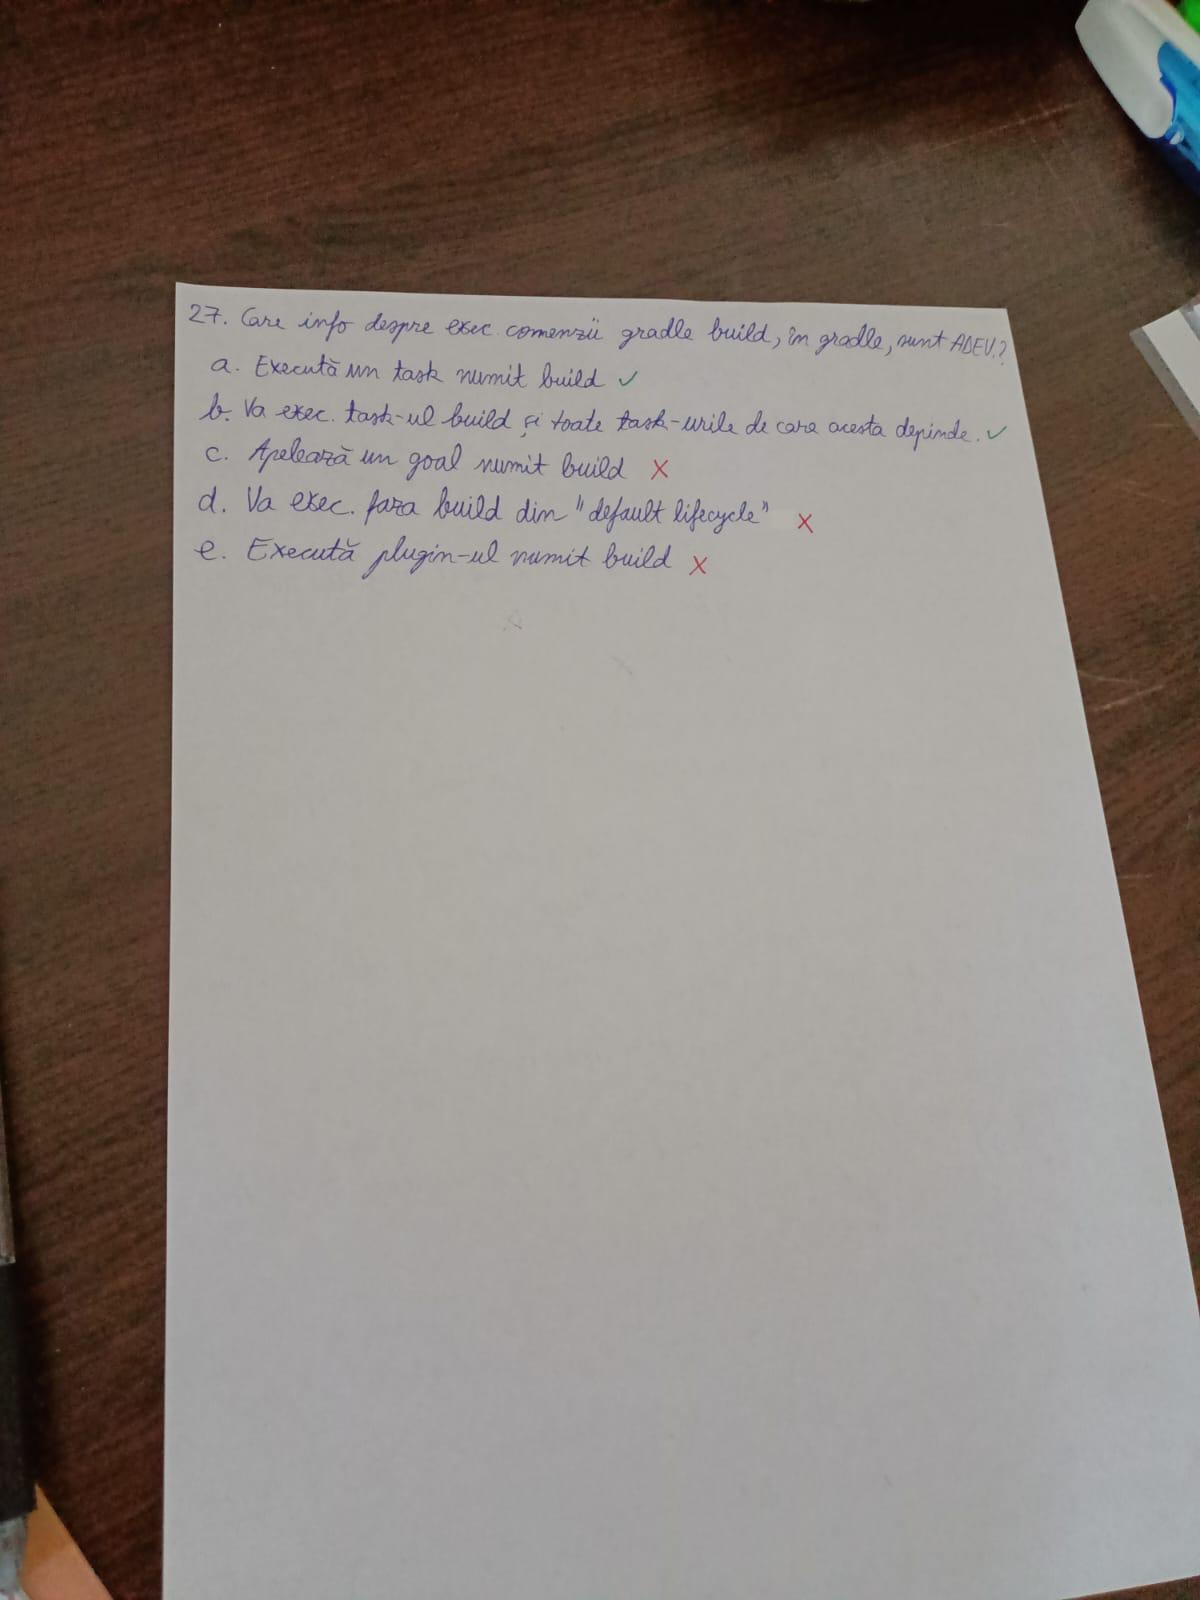 27. Care info despre exec. comenzii gradle build, în gradle, sunt ADEV.?
a. Execută un task numit build ✓
b. Va exec. task-ul build și toate task-urile de care acesta depinde. ✓
c. Apelează un goal numit build X
d. Va exec. faza build din "default lifecycle" X
e. Execută plugin-ul numit build X